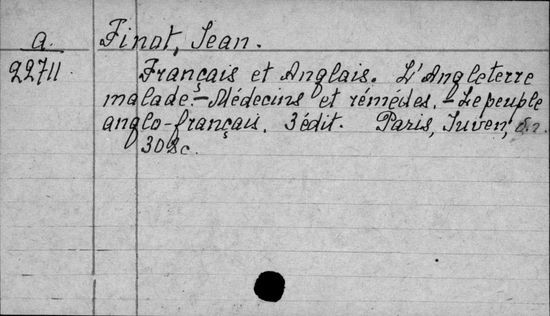 a. Finot, Jean.
22711. Français et Anglais. L'Angleterre
malade. - Médecins et rémédes. - Le peuple
anglo-français. 3 édit. Paris, Juven, s.a.
308c.